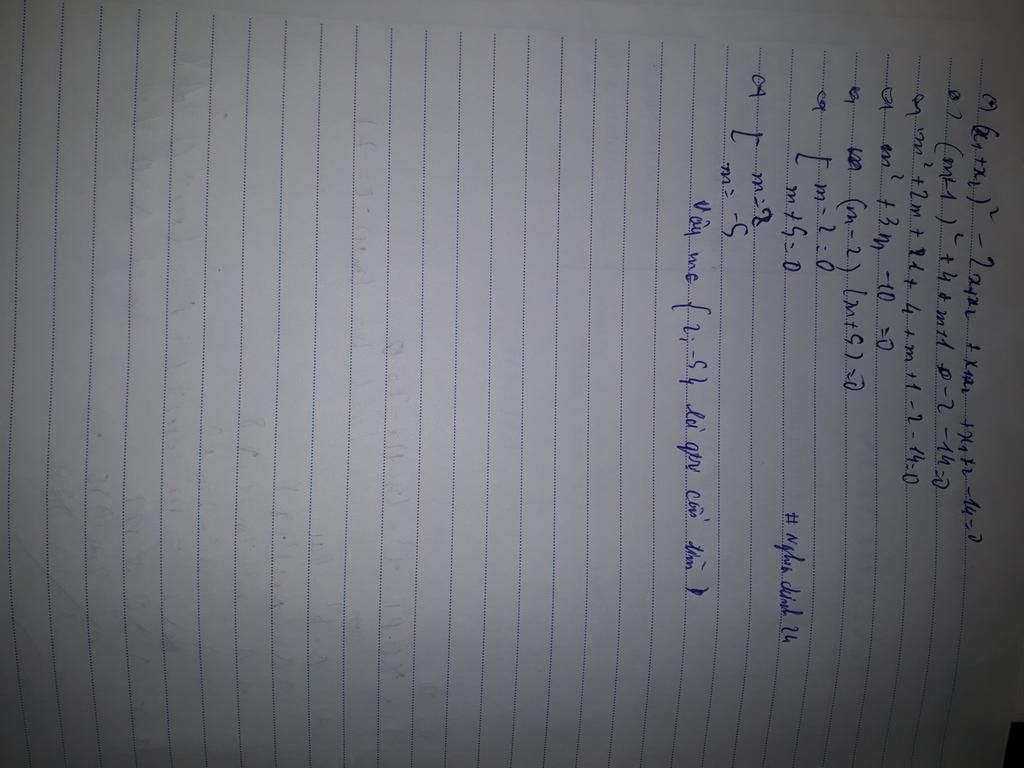 (*) (x₁+x₂)² - 2x₁x₂ + x₁x₂ + x₁+x₂ - 14=0
(m+1)² + 4 + m+1 - 2 - 14=0
m² + 2m + 1 + 4 + m + 1 - 2 - 14=0
m² + 3m - 10 = 0
(m-2)(m+5)=0
[ m-2=0
m+5=0
[ m=2
m= -5
Vậy m∈ {2; -5} là gtrị cần tìm